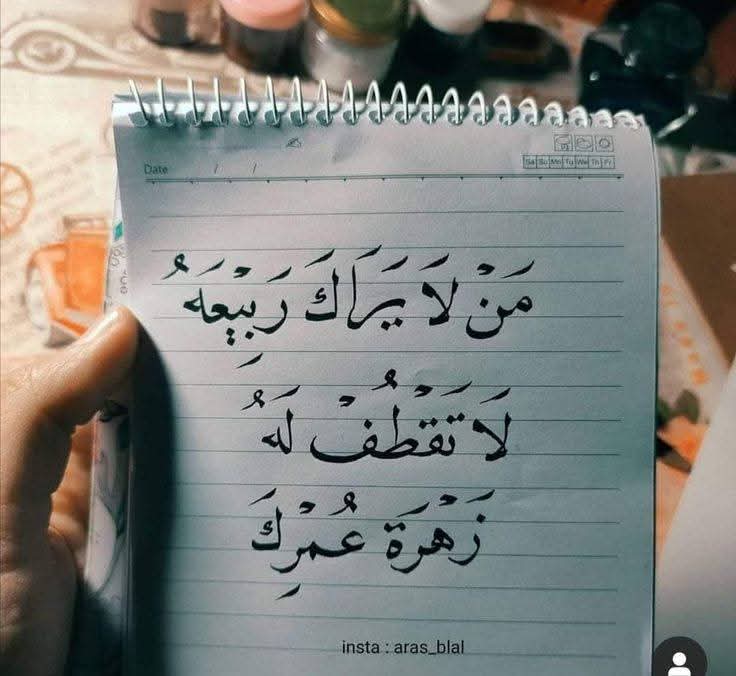 Date / /
Sa Su Mo Tu We Th Fr
مَنْ لَا يَرَاكَ رَبِيْعَهُ
لَا تَقْطُفْ لَهُ
زَهْرَةَ عُمْرِكَ
insta : aras_blal